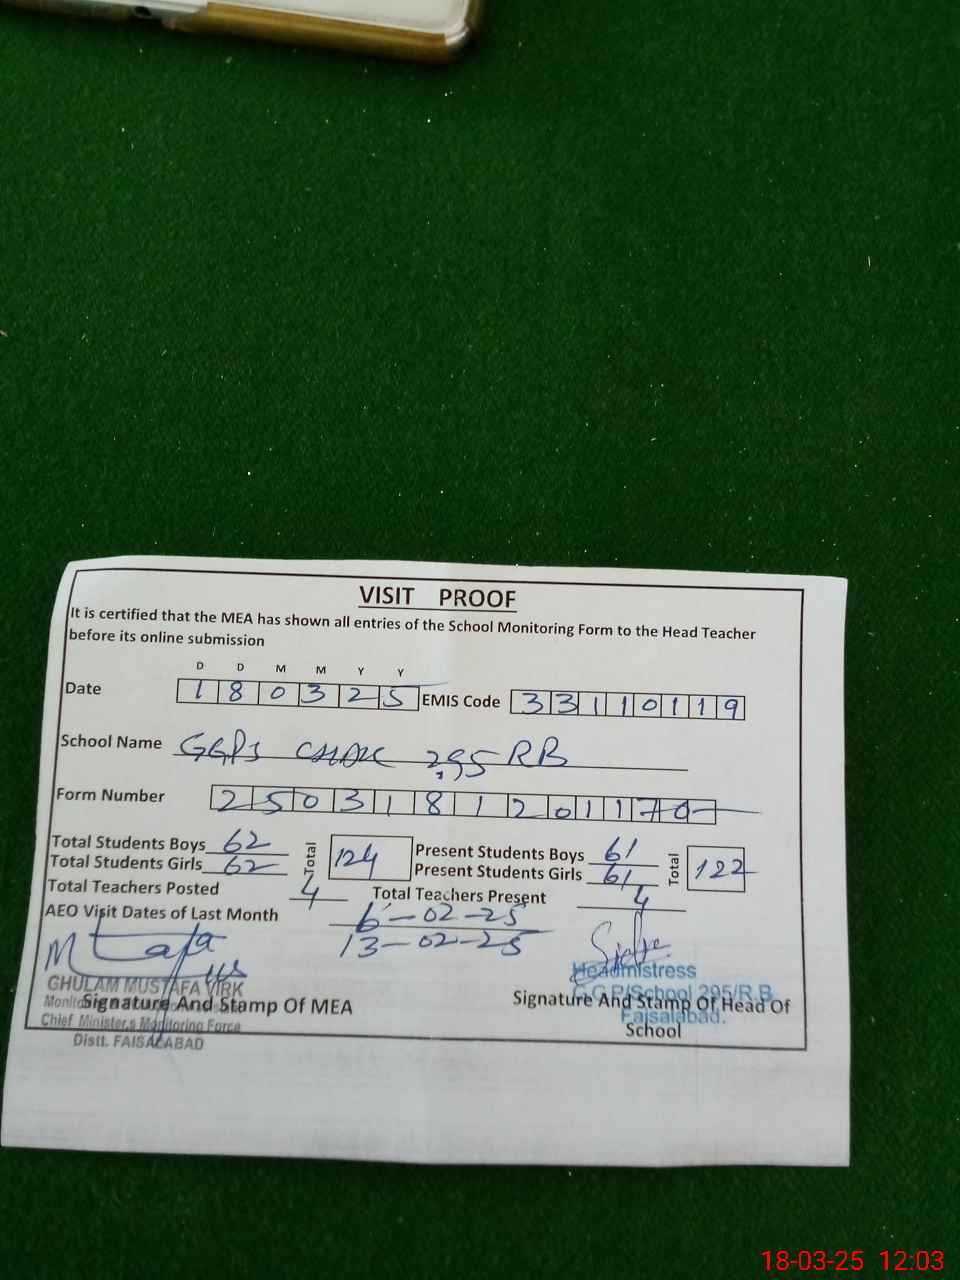 VISIT PROOF
It is certified that the MEA has shown all entries of the School Monitoring Form to the Head Teacher
before its online submission
D D M M Y Y
Date 1 8 0 3 2 5 EMIS Code 3 3 1 1 0 1 1 9
School Name GGPS CHAK 295 RB
Form Number 2 5 0 3 1 8 1 2 0 1 1 7 0
Total Students Boys 62 Total 124 Present Students Boys 61 Total 122
Total Students Girls 62 Present Students Girls 61
Total Teachers Posted 4 Total Teachers Present 4
AEO Visit Dates of Last Month 6-02-25
13-02-25
GHULAM MUSTAFA VIRK
Signature And Stamp Of MEA
Chief Minister,s Monitoring Force
Distt. FAISALABAD
Headmistress
G.G.P/School 295/R.B
Signature And Stamp Of Head Of
Faisalabad.
School
18-03-25 12:03